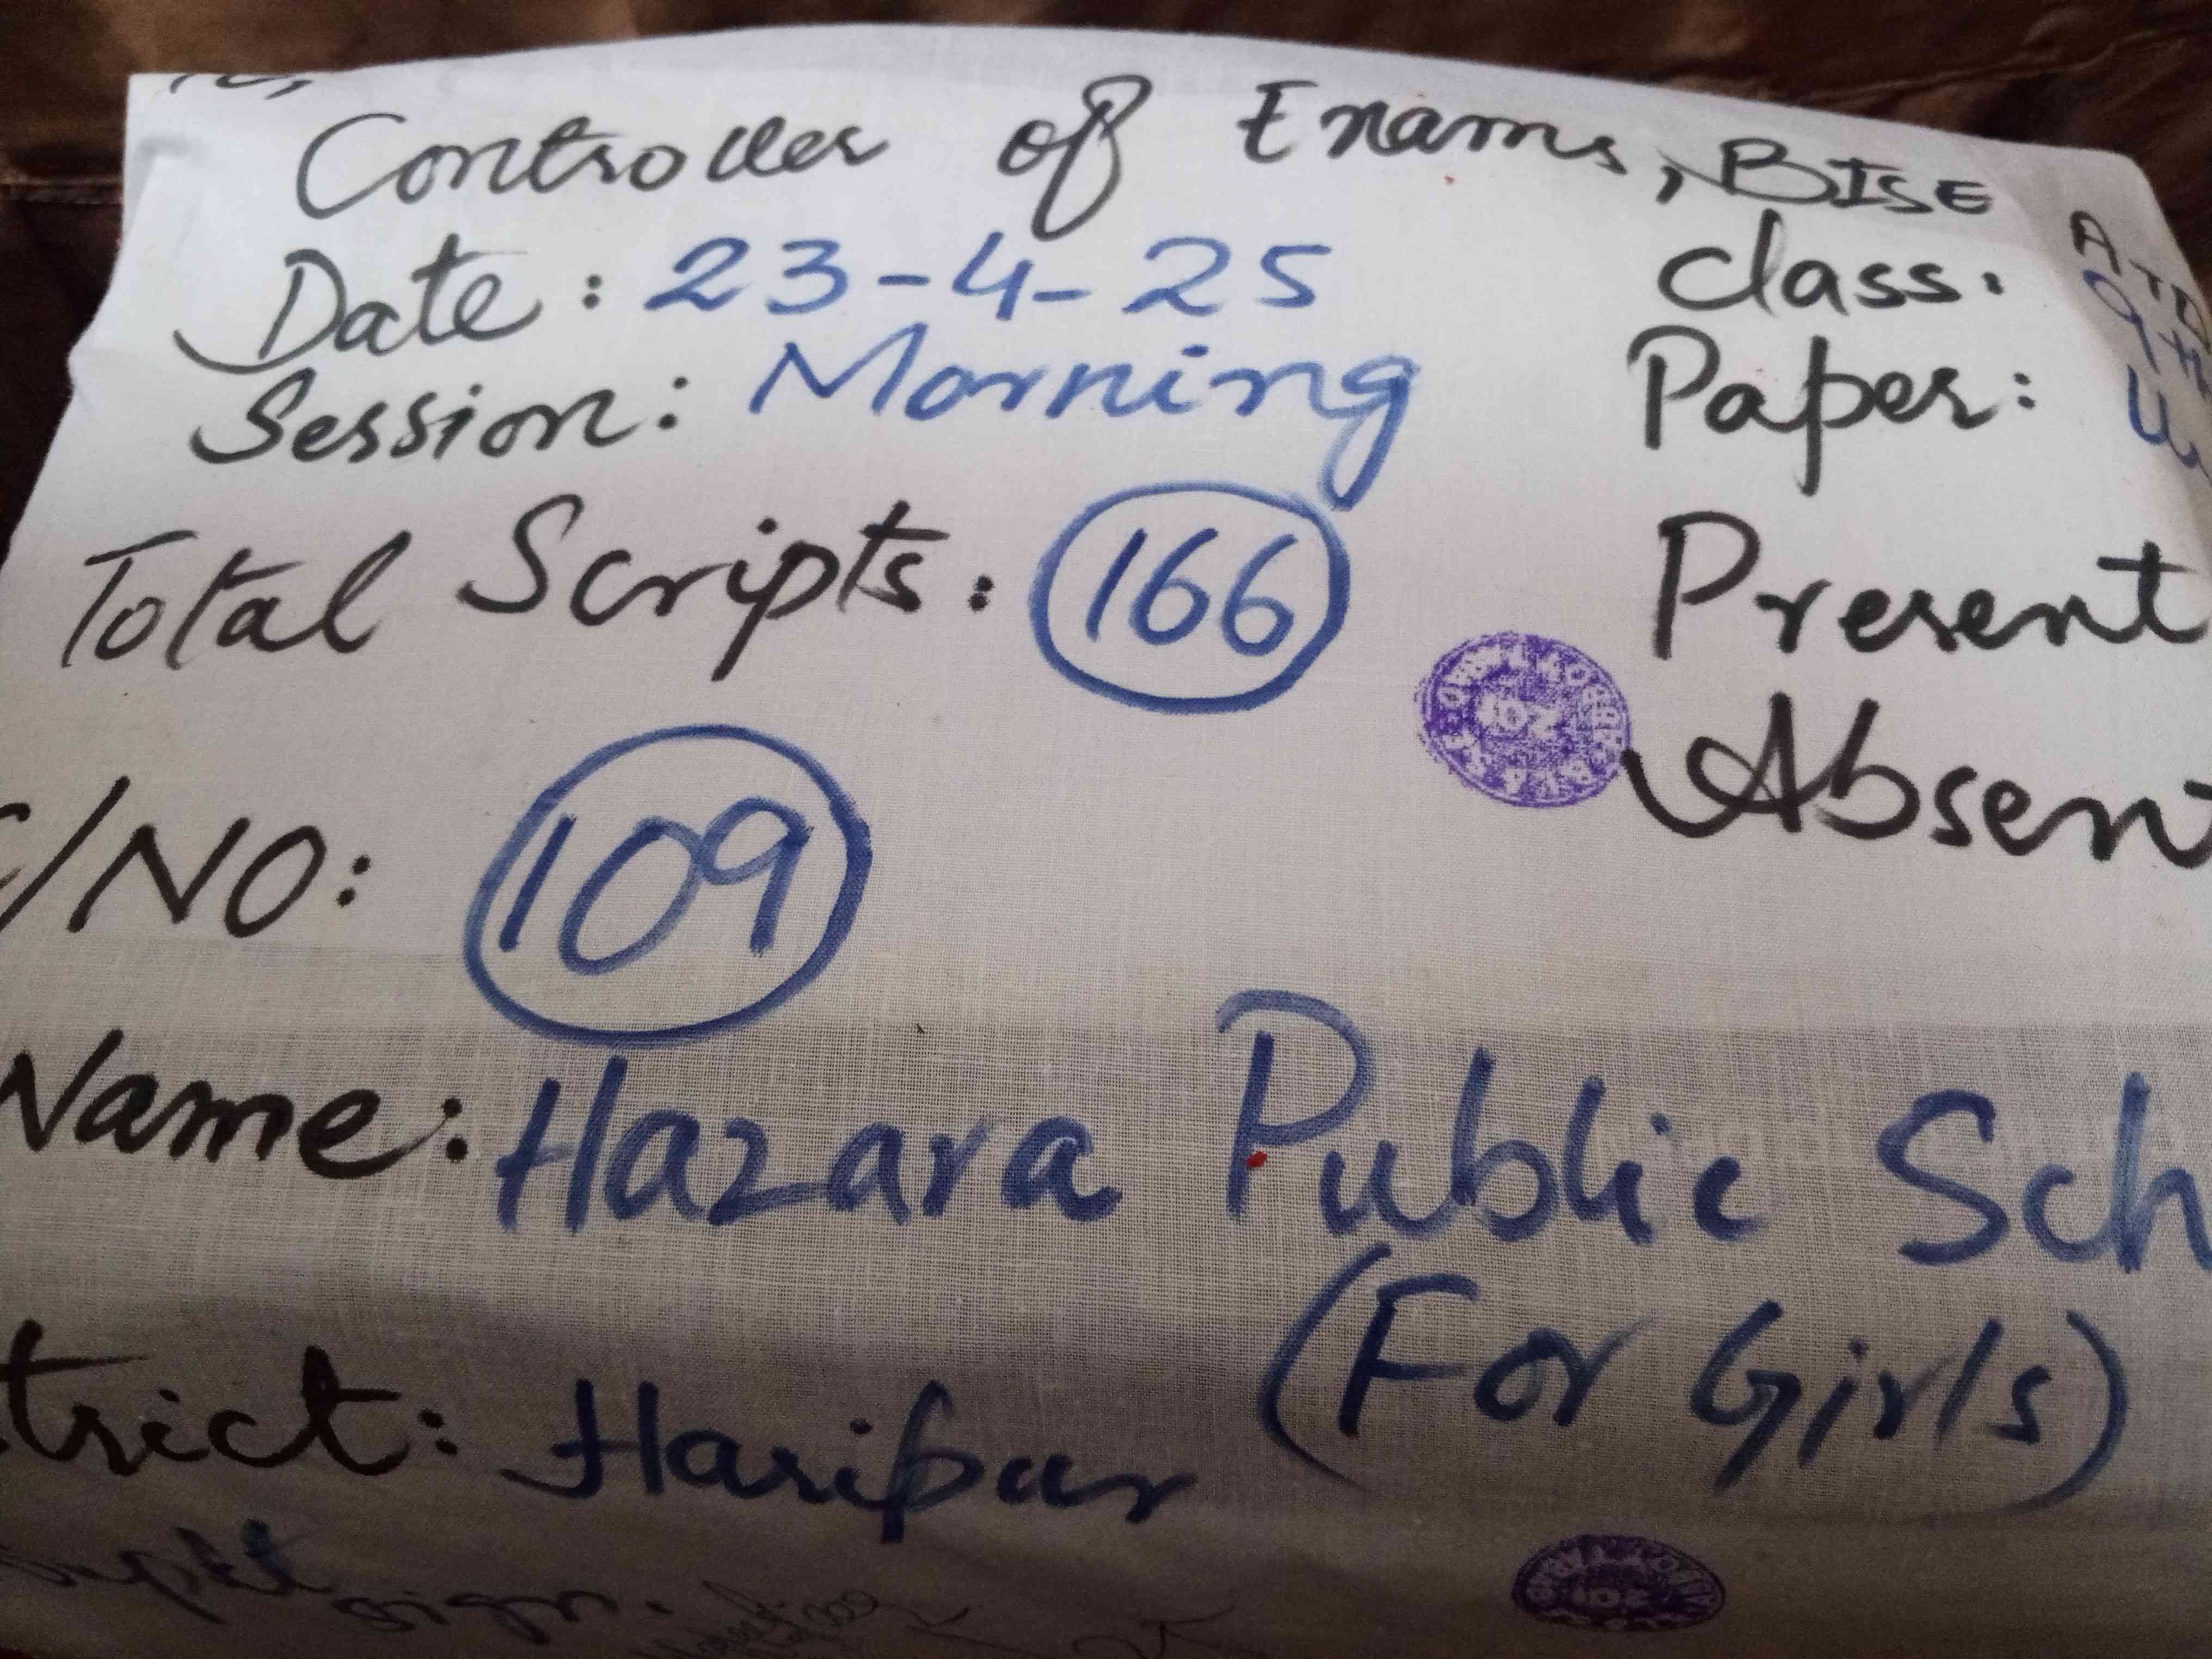 Controller of Exams, BISE ATD
Date: 23-4-25 Class: 9th
Session: Morning Paper:
Total Scripts: 166 Present
Absent
/NO: 109
Name: Hazara Public Sch
(For Girls)
trict: Haripur
Supdt sign.